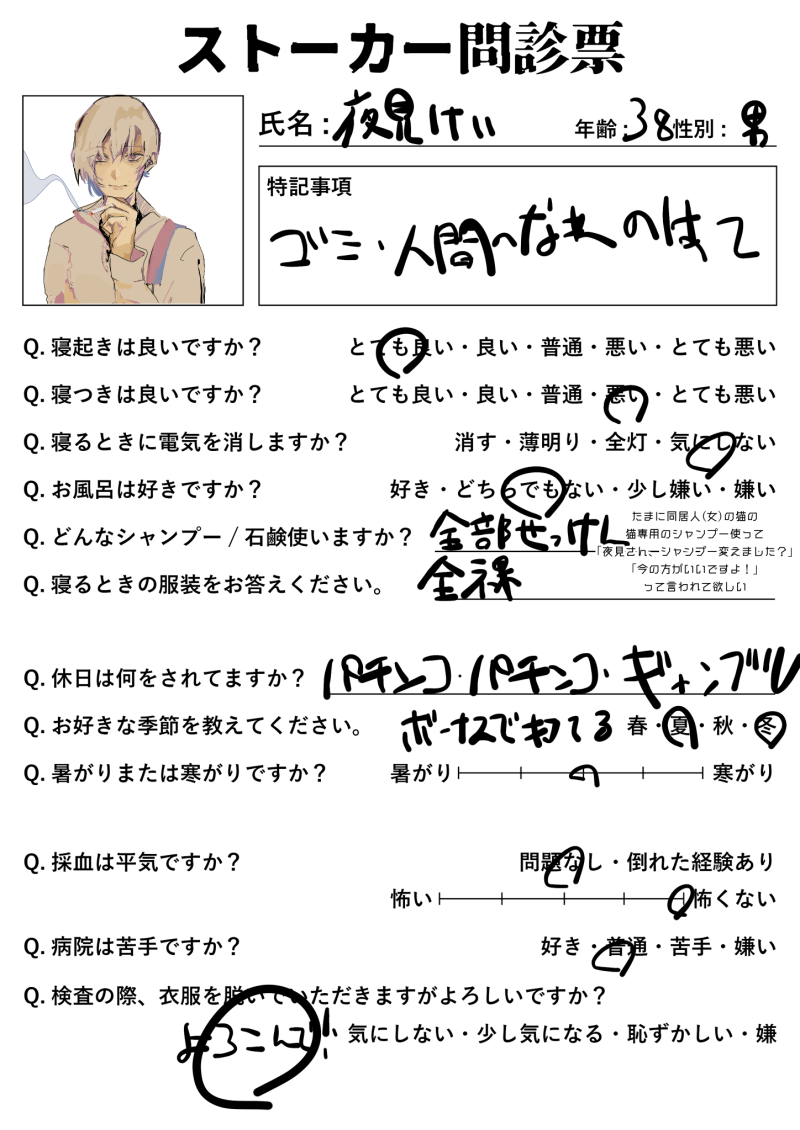 ストーカー問診票
氏名：夜見けい 年齢：38 性別：男
特記事項
ゴミ・人間のなれのはて
Q. 寝起きは良いですか？ とても良い・良い・普通・悪い・とても悪い
Q. 寝つきは良いですか？ とても良い・良い・普通・悪い・とても悪い
Q. 寝るときに電気を消しますか？ 消す・薄明り・全灯・気にしない
Q. お風呂は好きですか？ 好き・どちらでもない・少し嫌い・嫌い
Q. どんなシャンプー / 石鹸使いますか？ 全部せっけん
たまに同居人(女)の猫の
猫専用のシャンプー使って
「夜見さんーシャンプー変えました？」
「今の方がいいですよ！」
って言われて欲しい
Q. 寝るときの服装をお答えください。 全裸
Q. 休日は何をされてますか？ パチンコ・パチンコ・ギャンブル
Q. お好きな季節を教えてください。 ボーナスでねてる 春・夏・秋・冬
Q. 暑がりまたは寒がりですか？ 暑がり 寒がり
Q. 採血は平気ですか？ 問題なし・倒れた経験あり
怖い 怖くない
Q. 病院は苦手ですか？ 好き・普通・苦手・嫌い
Q. 検査の際、衣服を脱いでいただきますがよろしいですか？
よろこんで!! 気にしない・少し気になる・恥ずかしい・嫌